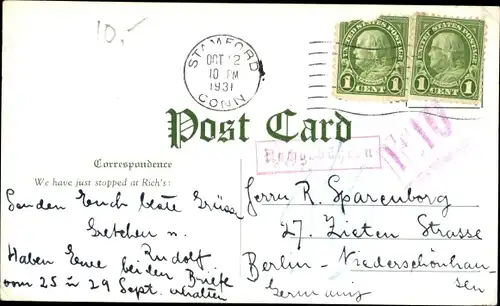 10.-
STAMFORD
OCT 12
10 PM
1931
CONN.
UNITED STATES POSTAGE
1 CENT 1
UNITED STATES POSTAGE
1 CENT 1
Post Card
Correspondence
We have just stopped at Rich's:
Senden Euch beste Grüsse
Gretchen u.
Rudolf
Haben Eure beiden Briefe
vom 25 u 29 Sept. erhalten
Nachgebühren
Herrn R. Sparenborg
27. Zieten Strasse
Berlin - Niederschönhau
sen
Germany